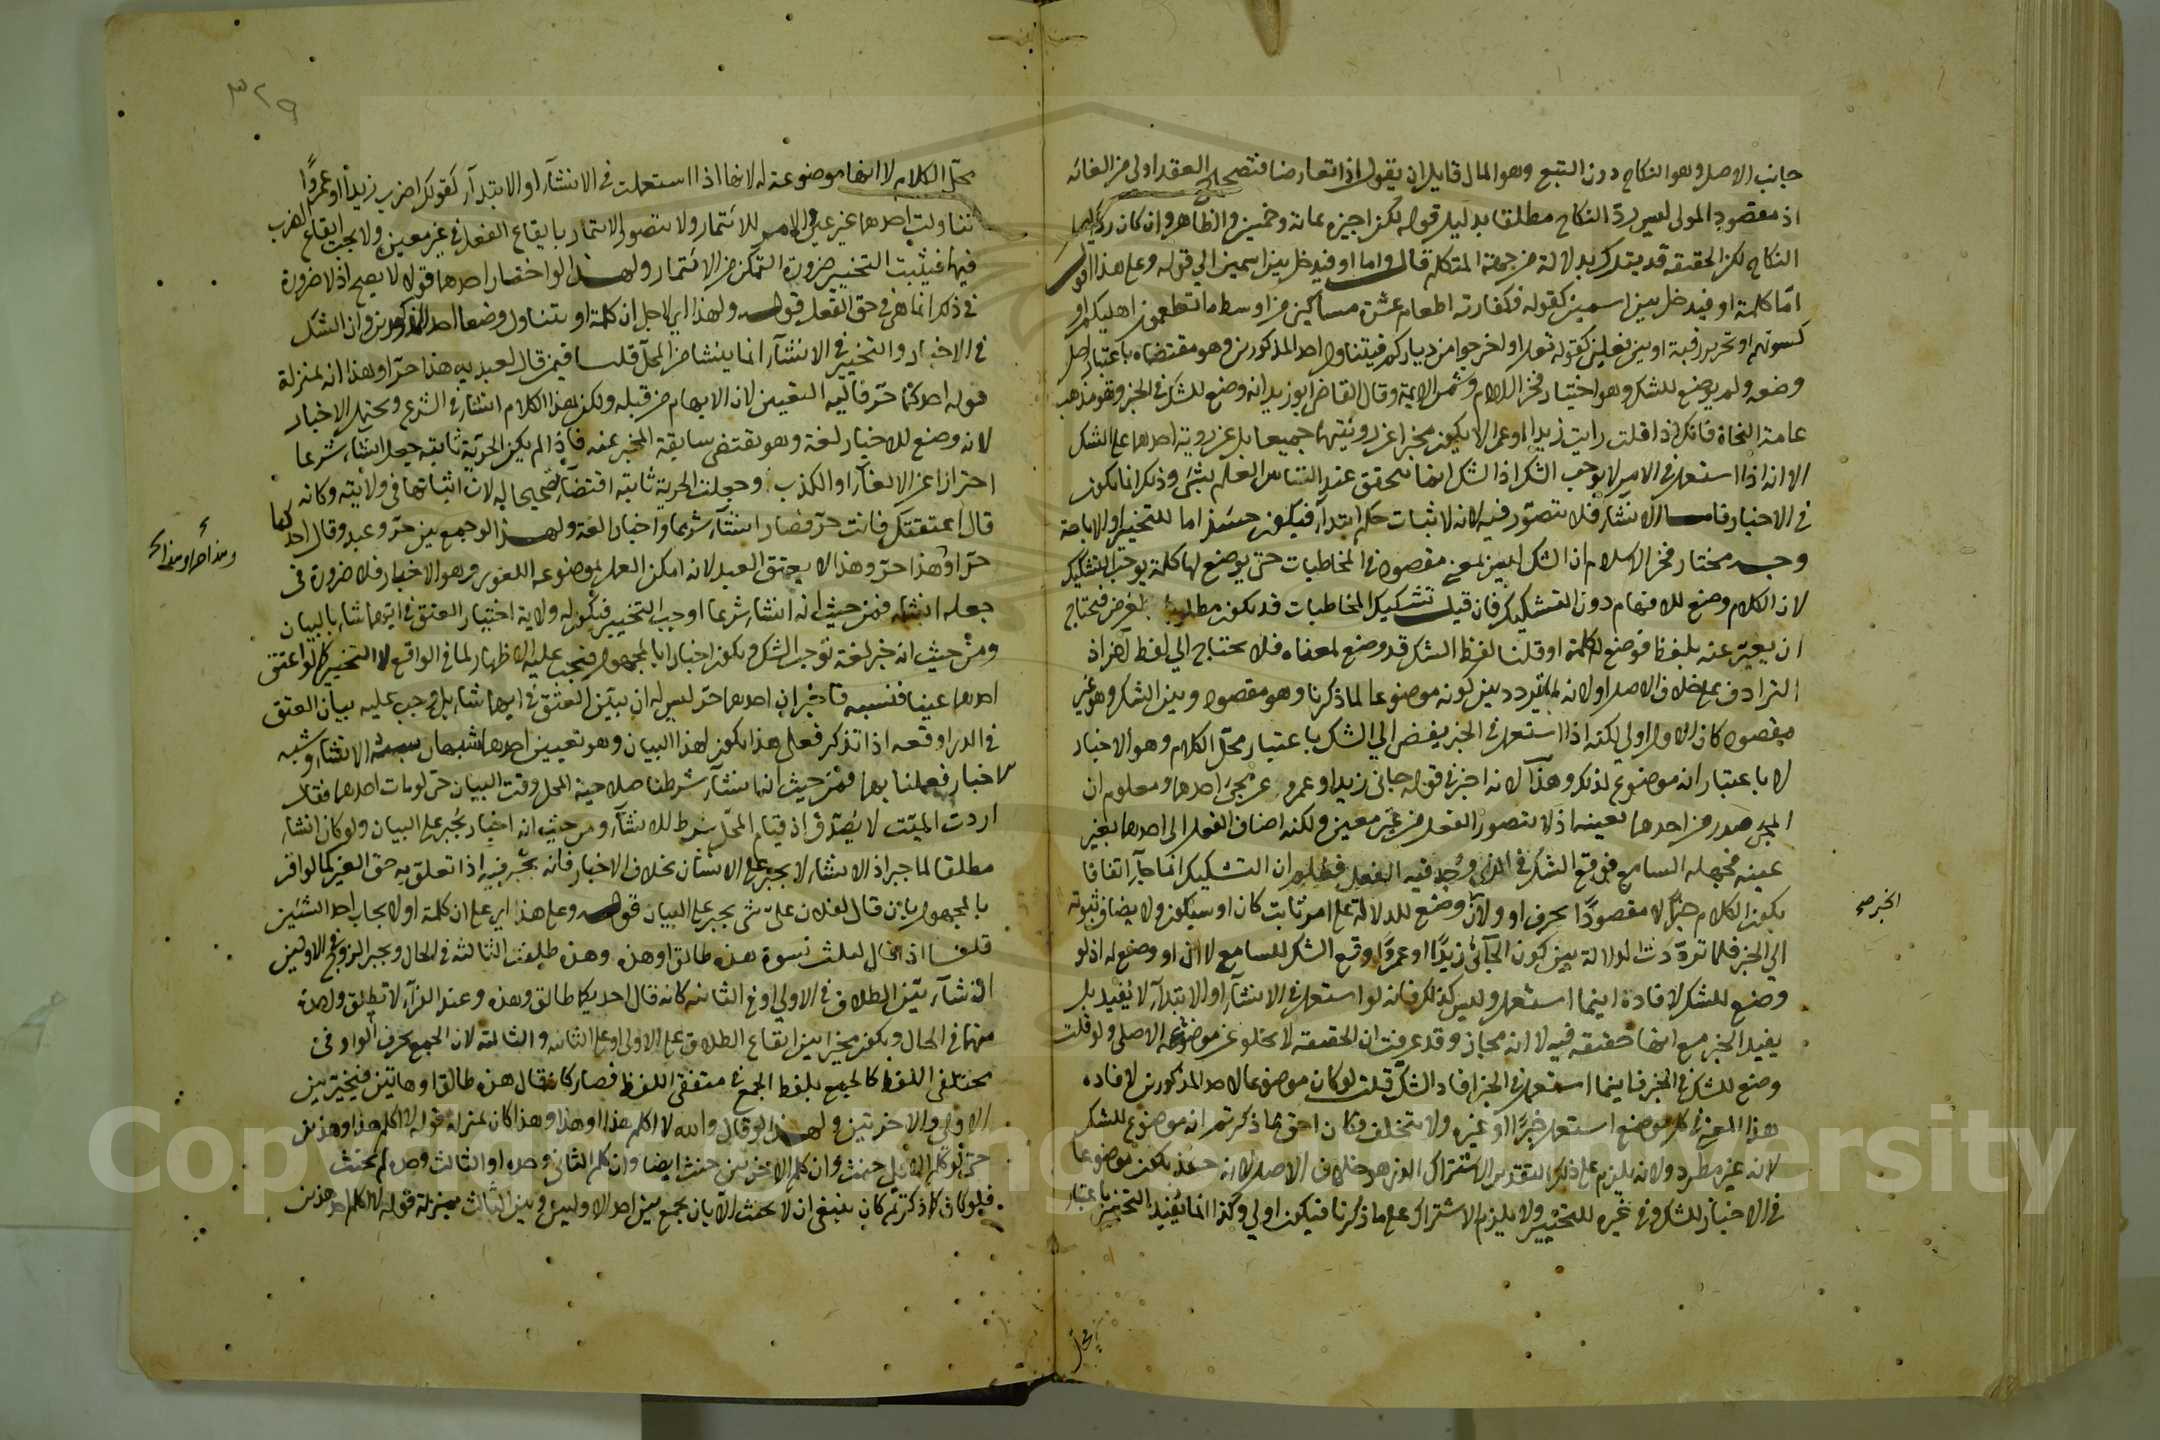 جانب الاصل وهو النكاح دون التبع وهو المال قايل ان يقول اذا تعارضا فتصحيح العقد اولى من الغائه
اذ مقصود المولى ليس ردّ النكاح مطلقا بدليل قوله لكن اجيزه بمائة وخمسين والظاهر وان كان
النكاح لكن الحقيقة قد يترك بدلالة من جهة المتكلم قال واما او فيدخل بين اسمين الى قوله وعلى هذا القول
امّا كلمة او فيدخل بين اسمين كقوله فكفارته اطعام عشرة مساكين من اوسط ما تطعمون اهليكم او
كسوتهم او تحرير رقبة او بين فعلين كقوله تعلى او اخرجوا من دياركم فيتناول احد المذكورين وهو مقتضاه باعتبار اصل
وضعه ولم يوضع للشك وهو اختيار فخر الاسلام وشمس الايمة وقال القاضي ابو زيد انه وضع للشك في الخبر وهو مذهب
عامة النحاة فانك اذا قلت رايت زيدا او عمرا لا يكون مخبرا عن رويتهما جميعا بل عن روية احدهما على الشك
الا انه اذا استعمل في الامر لا يوجب الشك اذ الشك انما يتحقق عند التباس العلم بشئ وذلك انما يكون
في الاخبار فاما الانشاء فلا يتصوّر فيه لانه لاثبات حكم ابتداء فيكون حينئذ اما للتخيير او الاباحة
وجه مختار فخر الاسلام ان الشك ليس بمعنى مقصود في المخاطبات حتى يوضع لها كلمة يوجب التشكيك
لان الكلام وضع للافهام دون التشكيك فان قيل تشكيك المخاطبات قد يكون مطلوبا لغرض فيحتاج
ان يعبّر عنه بلفظ فوضع له كلمة او قلنا لفظ الشك قد وضع لمعناه فلا يحتاج الى لفظ آخر اذ
الترادف على خلاف الاصل ولانه لما تردد بين كونه موضوعا لما ذكرنا وهو مقصود وبين الشك وهو غير
مقصود كان الاول اولى لكنه اذا استعمل في الخبر يفضي الى الشك باعتبار محلّ الكلام وهو الاخبار
لا باعتبار انه موضوع لذلك وهذا لانه اخبر في قوله جانى زيد او عمرو عن مجئ احدهما ومعلوم ان
المجئ صدر من احدهما بعينه اذ لا يتصور الفعل من غير معين ولكنه اضاف الفعل الى احدهما بغير
عينه فجهله السامع فوقع الشك في الذي وجد فيه الفعل فظهر ان التشكيك انما جآء اتفاقا
بكون الكلام خبرًا لا مقصودًا بحرف او ولان وضع للدلالة على امر ثابت كان او سيكون ولا يضاف ثبوته
الخبر صح
الى الخبر فلما تردّدت الدلالة بين كون الجآئى زيدًا او عمرًا وقع الشك للسامع لا ان او وضع له اذ لو
وضع للشك لافاده اينما استعمل وليس كذلك فانه لو استعمل في الانشآء او الابتدآء لا يفيد بل
يفيد الخبر مع انها حقيقة فيه لا انه مجاز وقد عرفت ان الحقيقة لا يخلو عن موضوعه الاصلي ولو قلت
وضع للشك في الخبر فاينما استعمل في الخبر افاد الشك قلت لو كان موضوعا لاحد المذكورين لافاده
هذا المعنى في كل موضع استعمل خبرًا او غيره ولا يتخلف فكان احق مما ذكرتم انه موضوع للشك
لانه غير مطّرد ولانه يلزم على ذلك التقدير الاشتراك الذي هو خلاف الاصل لانه حينئذ يكون موضوعا
في الاخبار للشك وفي غيره للتخيير ولا يلزم الاشتراك على ما ذكرنا فيكون اولى وكذا انما يفيد التخيير باعتبار
محل
٣٢٩
محلّ الكلام لا انها موضوعة له لانها اذا استعملت في الانشآء او الابتدآء كقولك اضرب زيدا او عمرًوا
تناولت احدهما غير عين والامر للائتمار ولا يتصور الائتمار بايقاع الفعل في غير معين ولا يجب ايقاع الضرب
فيهما فيثبت التخيير ضرورة التمكن من الائتمار ولهذا لو اختار احدهما قولا لا يصح اذ لا ضرورة
في ذلك انما هي في حق الفعل قوله ولهذا اي لاجل ان كلمة او يتناول وضعا احد المذكورين وان الشك
في الاخبار والتخيير في الانشآء انما ينشا من المحلّ قلنا فيمن قال لعبديه هذا حرّ او هذا انه بمنزلة
قوله احدكما حرّ فاليه التعيين لان الابهام من قبله ولكن هذا الكلام انشاء في الشرع ويحتمل الاخبار
لانه وضع للاخبار لغة وهو يقتضي سابقة المخبر عنه فاذا لم يكن الحرّية ثابتة جعل انشاء شرعا
احترازا عن الالغآء او الكذب وجعلت الحرية ثابتة اقتضآء تصحيحا له لان اثباتها في ولايته وكانه
قال اعتقتك فانت حرّ فصار انشآء شرعا واخبارا لغة ولهذا لو جمع بين حرّ وعبد وقال احدكما
حرّ او هذا حرّ وهذا لا يعتق العبد لانه امكن العمل بموضوعه اللغوى وهو الاخبار فلا ضرورة فى
جعله انشاء فمن حيث انه انشاء شرعا اوجب التخيير فيكون له ولاية اختيار العتق في ايهما شاء بالبيان
ومن حيث انه خبر لغة يوجب الشك ويكون اخبارا بالمجهول فيجب عليه الاظهار لما في الواقع لا التخيير كما لو اعتق
احدهما عينا فنسيه فاخبر ان احدهما حرّ ليس له ان يبيّن العتق في ايهما شاء بل وجب عليه بيان العتق
في الذي اوقعه اذا تذكر فعلى هذا يكون لهذا البيان وهو تعيين احدهما شبهان شبه الانشاء وشبه
الاخبار فعملنا بهما فمن حيث انه انشآء شرطنا صلاحية المحل وقت البيان حتى لو مات احدهما فقال
اردت الميّت لا يُصدّق اذ قيام المحلّ شرط للانشآء ومن حيث انه اخبار يُجبر على البيان ولو كان انشاء
مطلقا لما جبر اذ الانشاء لا يجبر على الانشآن بخلاف الاخبار فانه يجبر فيه اذا تعلق به حق الغير كما لو اقر
بالمجهول بان قال لفلان علىّ شئ يجبر على البيان قوله وعلى هذا اي على ان كلمة او لايجاب احد الشيئين
قلنا اذا قال لثلث نسوة هذه طالق او هذه وهذه طلقت الثالثة في الحال ويجبر الزوج في الاوليين
ان شآء بيّن الطلاق في الاولى او في الثانية كانه قال احديكما طالق وهذه وعند الفرآء لا تطلق واحدة
منها في الحال ويكون مخيّرا بين ايقاع الطلاق على الاولى او على الثانية والثالثة لان الجمع بحرف الواو فى
مختلفى اللفظ كالجمع بلفظ الجمع في متفقى اللفظ فصار كانه قال هذه طالق او هاتين فيخير بين
الاولى والاخريين ولهذا لو قال والله لا اكلم هذا او هذا وهذا كان بمنزلة قوله لا اكلم هذا او هذين
حتى لو كلم الاول حنث وان كلم الاخرين حنث ايضا وان كلم الثانى وحده او الثالث وحده لم يحنث
فلو كان كما ذكرتم كان ينبغى ان لا يحنث الا بان يجمع بين احد الاوليين وبين الثالث بمنزلة قوله لا اكلم احد هذين
Copyright © King Saud University